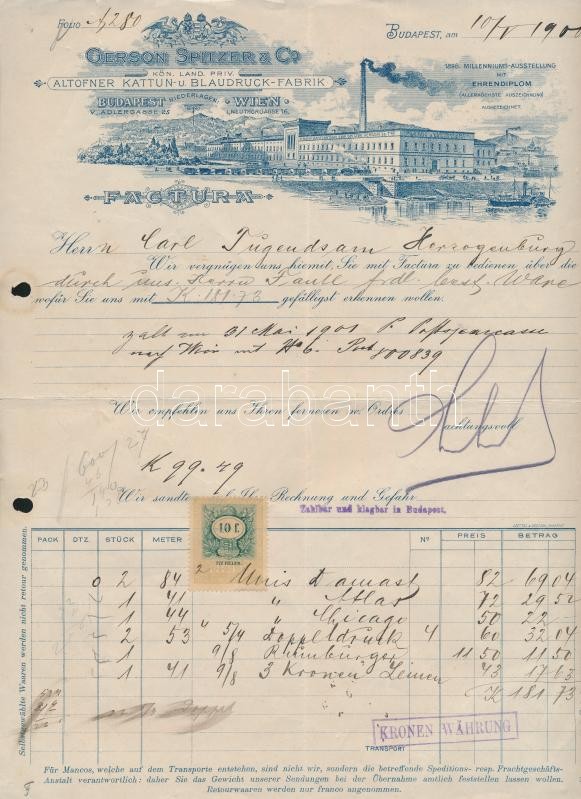 FOLIO 280
BUDAPEST, am 10/V 1900
GERSON SPITZER & Co
KÖN. LAND. PRIV.
ALTOFNER KATTUN- U BLAUDRUCK-FABRIK
BUDAPEST NIEDERLAGEN: WIEN
V. ADLERGASSE 25
1896. MILLENNIUMS-AUSSTELLUNG
MIT
EHRENDIPLOM
(ALLERHÖCHSTE AUSZEICHNUNG)
AUSGEZEICHNET.
FACTURA
Herrn Carl Tugendsam Herzogenburg
Wir vergnügen uns hiemit, Sie mit Factura zu bedienen über die
durch uns. Herrn
wofür Sie uns mit K 181.73 gefälligst erkennen wollen.
zalt am 31 Mai 1901
nach Wien mit 800839
darabanth
Wir empfehlen uns Ihren ferneren w. Ordres
achtungsvoll
K 99.49
Wir sandten Ihre Rechnung und Gefahr
Zahlbar und klagbar in Budapest.
PACK DTZ. STÜCK METER No PREIS BETRAG
2 84 2 Unis Damast 82 69 04
1 41 " Atlas 72 29 52
1 44 " " Chicago 50 22 —
2 53 5/4 Doppeldruck 4 60 32 04
1 9/8 Rumburger 11 50 11 50
1 41 9/8 3 Kronen Leinen 43 17 63
K 181 73
KRONEN WÄHRUNG
TRANSPORT
Selbstgewählte Waaren werden nicht retour genommen.
Für Mancos, welche auf dem Transporte entstehen, sind nicht wir, sondern die betreffende Speditions- resp. Frachtgeschäfts-
Anstalt verantwortlich: daher Sie das Gewicht unserer Sendungen bei der Übernahme amtlich feststellen lassen wollen.
Retourwaaren werden nur franco angenommen.